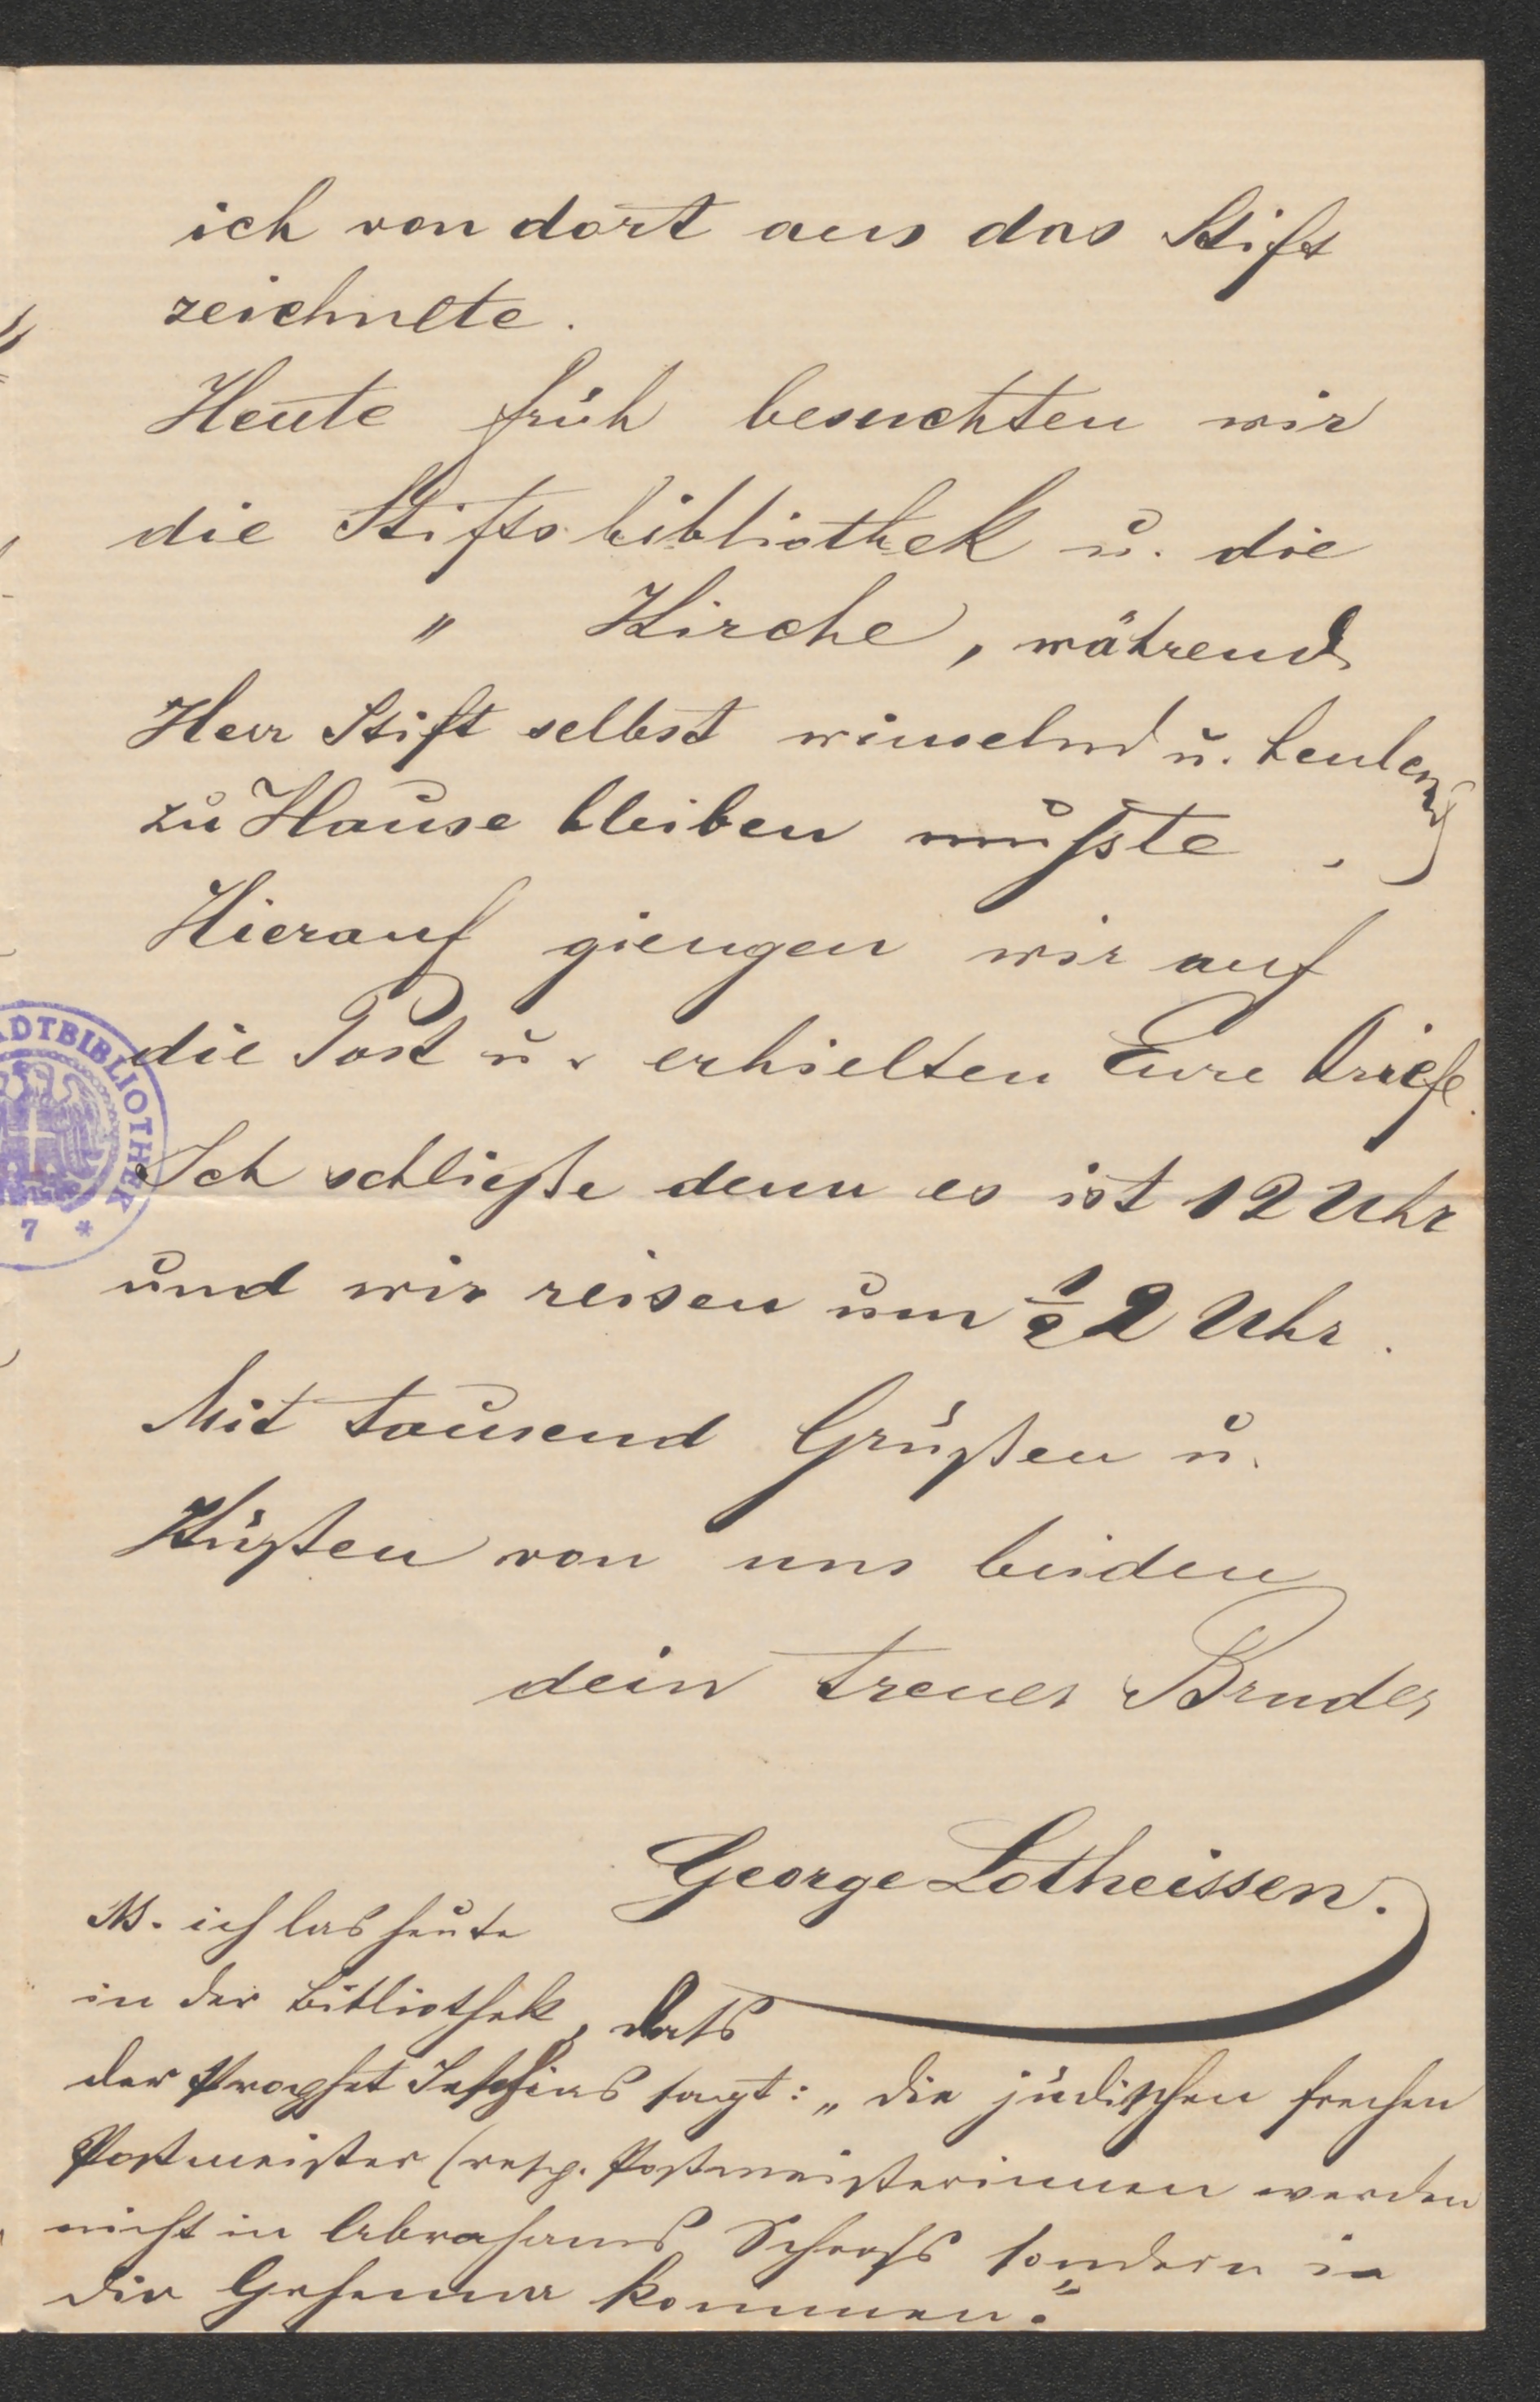 ich von dort aus das Stift
zeichnete.
Heute früh besuchten wir
die Stiftsbibliothek u. die
" Kirche, während
Herr Stift selbst winselnd u. heulend
zu Hause bleiben mußte.
Hierauf giengen wir auf
die Post u. erhielten Eure Briefe.
Ich schließe denn es ist 12 Uhr
und wir reisen um ½ 2 Uhr.
Mit tausend Grüßen u.
Küßen von uns beiden
dein treuer Bruder
George Lotheissen.
NB. ich las heute
in der Bibliothek, daß
der Prophet sagt: „die jüdischen frechen
Postmeister (resp. Postmeisterinnen werden
nicht in Abrahams Schooß sondern in
die Gehenna kommen."
ADTBIBLIOTHEK
7 *